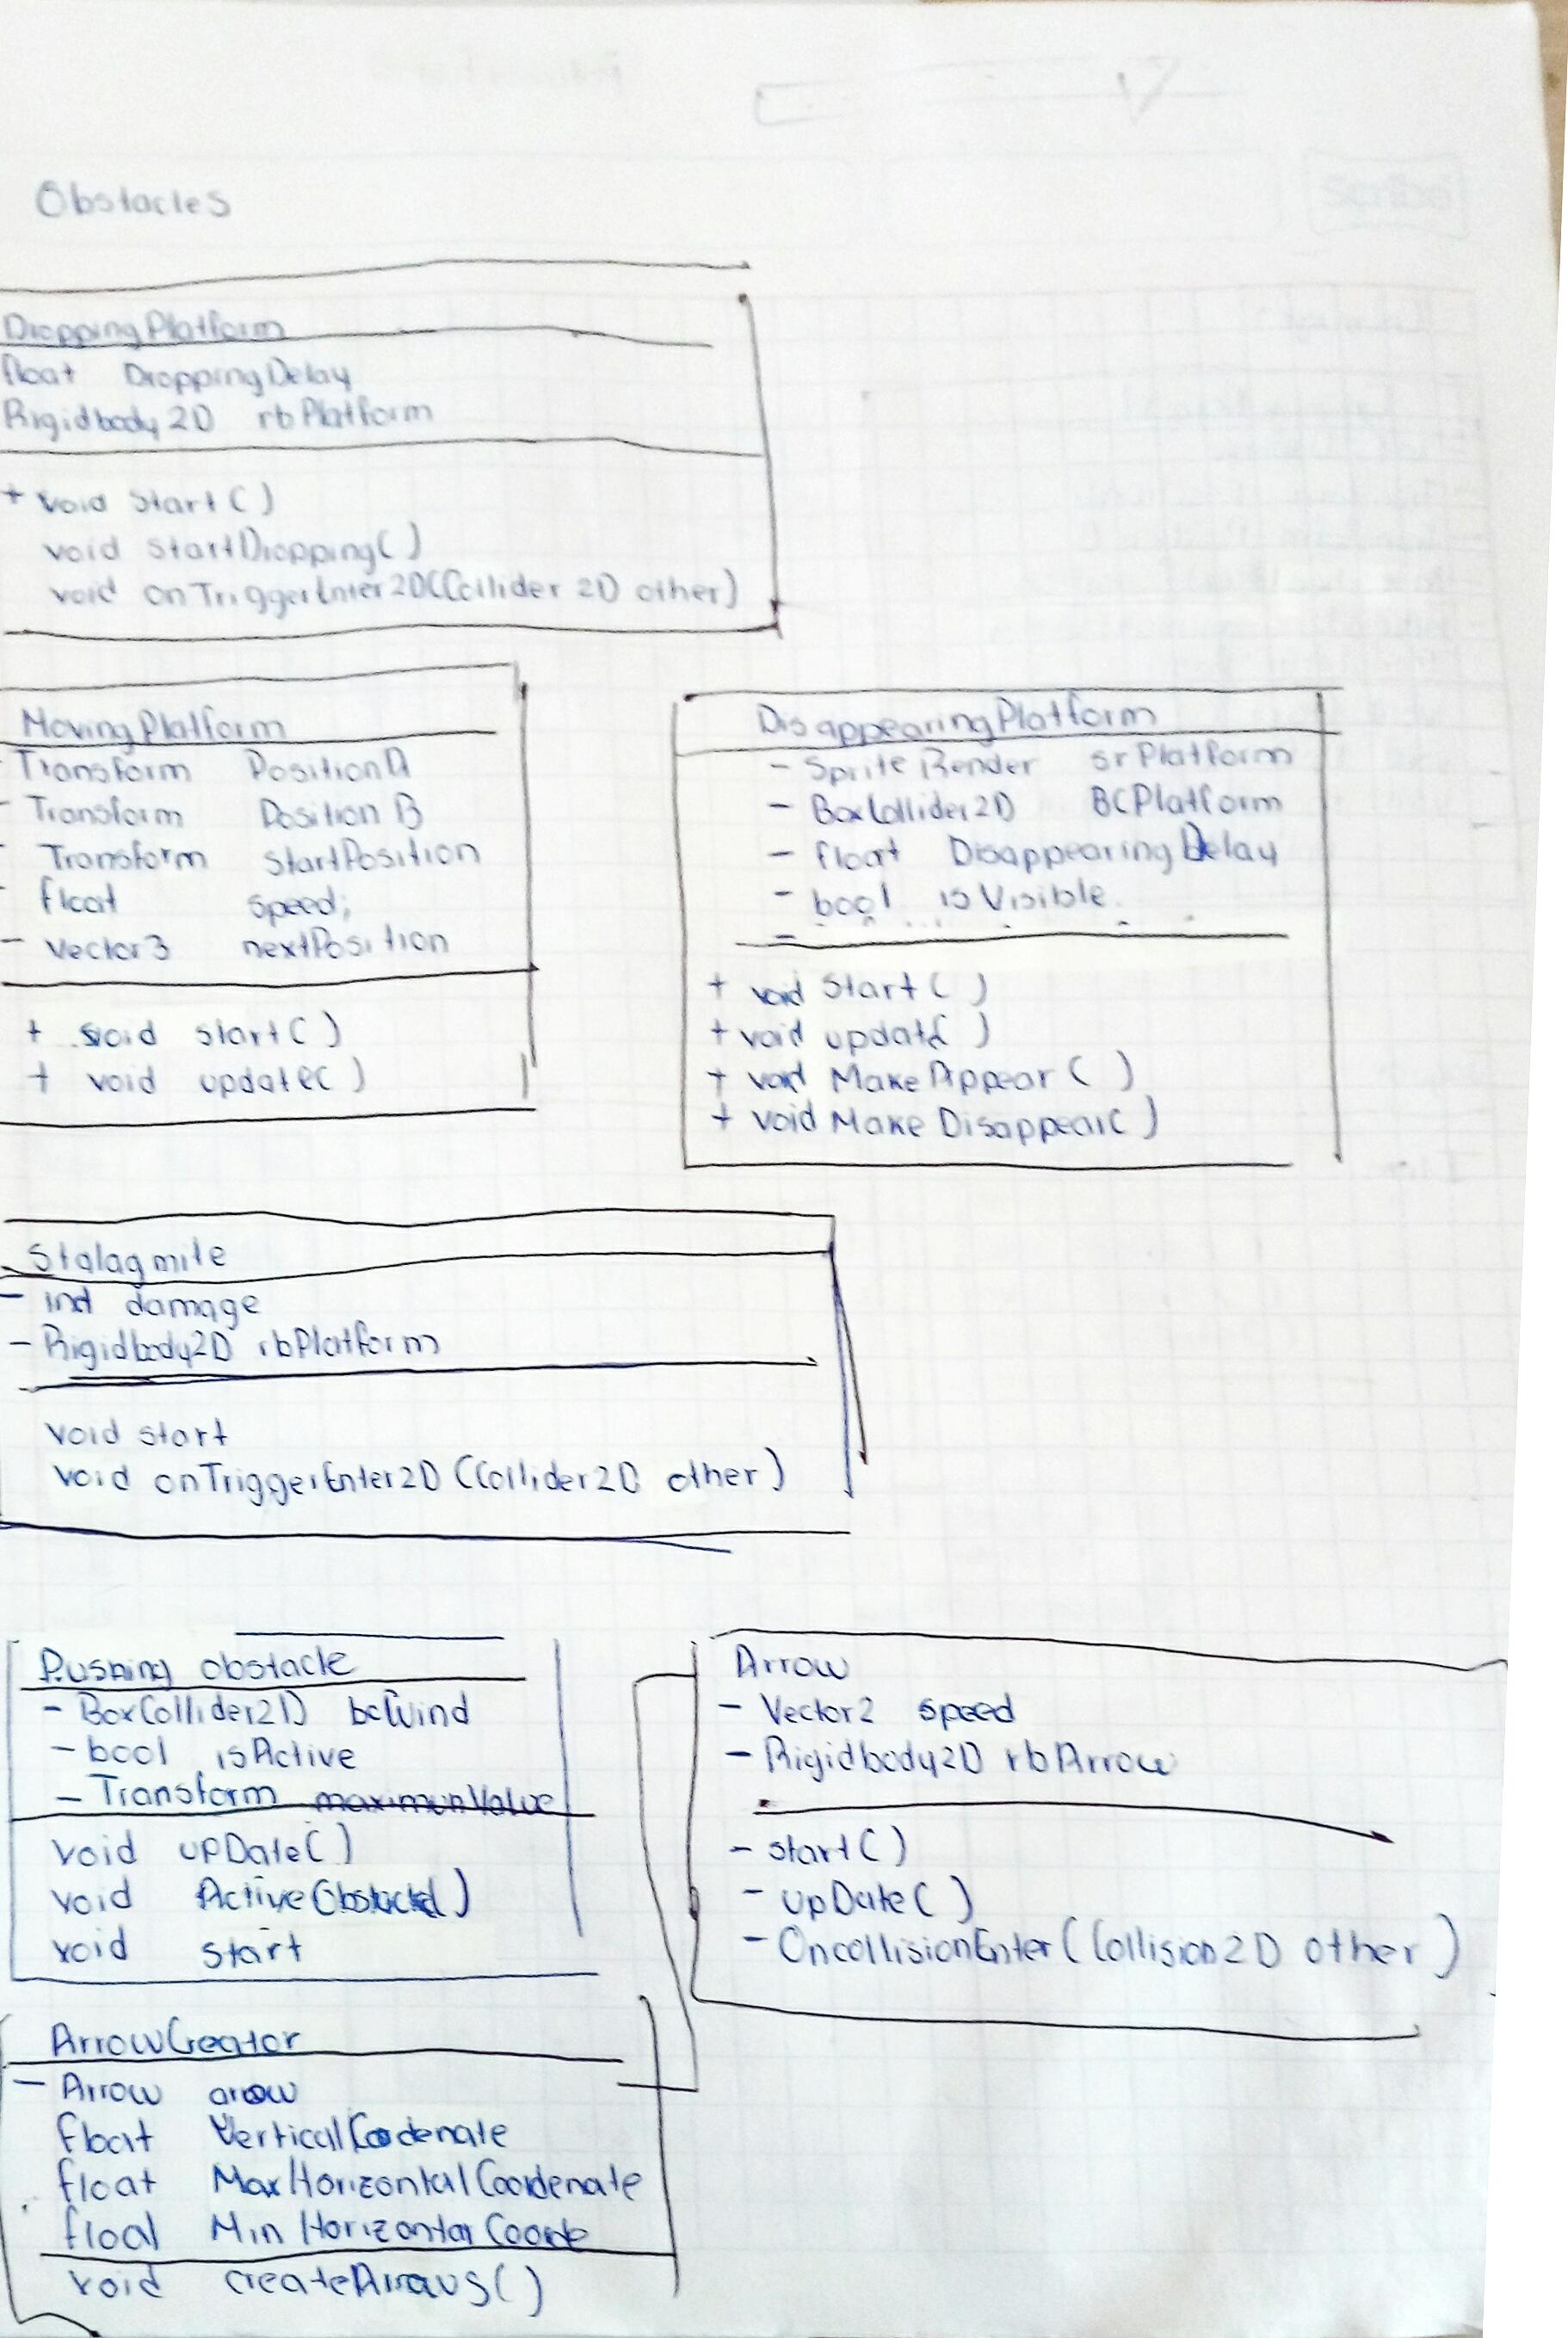 Obstacles
DroppingPlatform
float DroppingDelay
Rigidbody2D rbPlatform
+ void Start()
void StartDropping()
void onTriggerEnter2D(Collider 2D other)
MovingPlatform
Transform PositionA
- Transform Position B
- Transform startPosition
- float speed;
- Vector3 nextPosition
+ void start()
+ void update()
DisappearingPlatform
- SpriteRender srPlatform
- BoxCollider2D BCPlatform
- float DisappearingDelay
- bool isVisible
+ void Start()
+ void update()
+ void MakeAppear()
+ void MakeDisappear()
Stalagmite
- int damage
- Rigidbody2D rbPlatform
void start
void onTriggerEnter2D (Collider2D other)
Pushing obstacle
- BoxCollider2D bcWind
- bool isActive
- Transform maximunValue
void upDate()
void Active Obstacle()
void start
Arrow
- Vector2 speed
- Rigidbody2D rbArrow
- start()
- upDate()
- OncollisionEnter(Collision2D other)
ArrowCreator
- Arrow arow
float VerticalCoordenate
float MaxHorizontalCoordenate
float Min HorizontarCoorde
void createArraws()